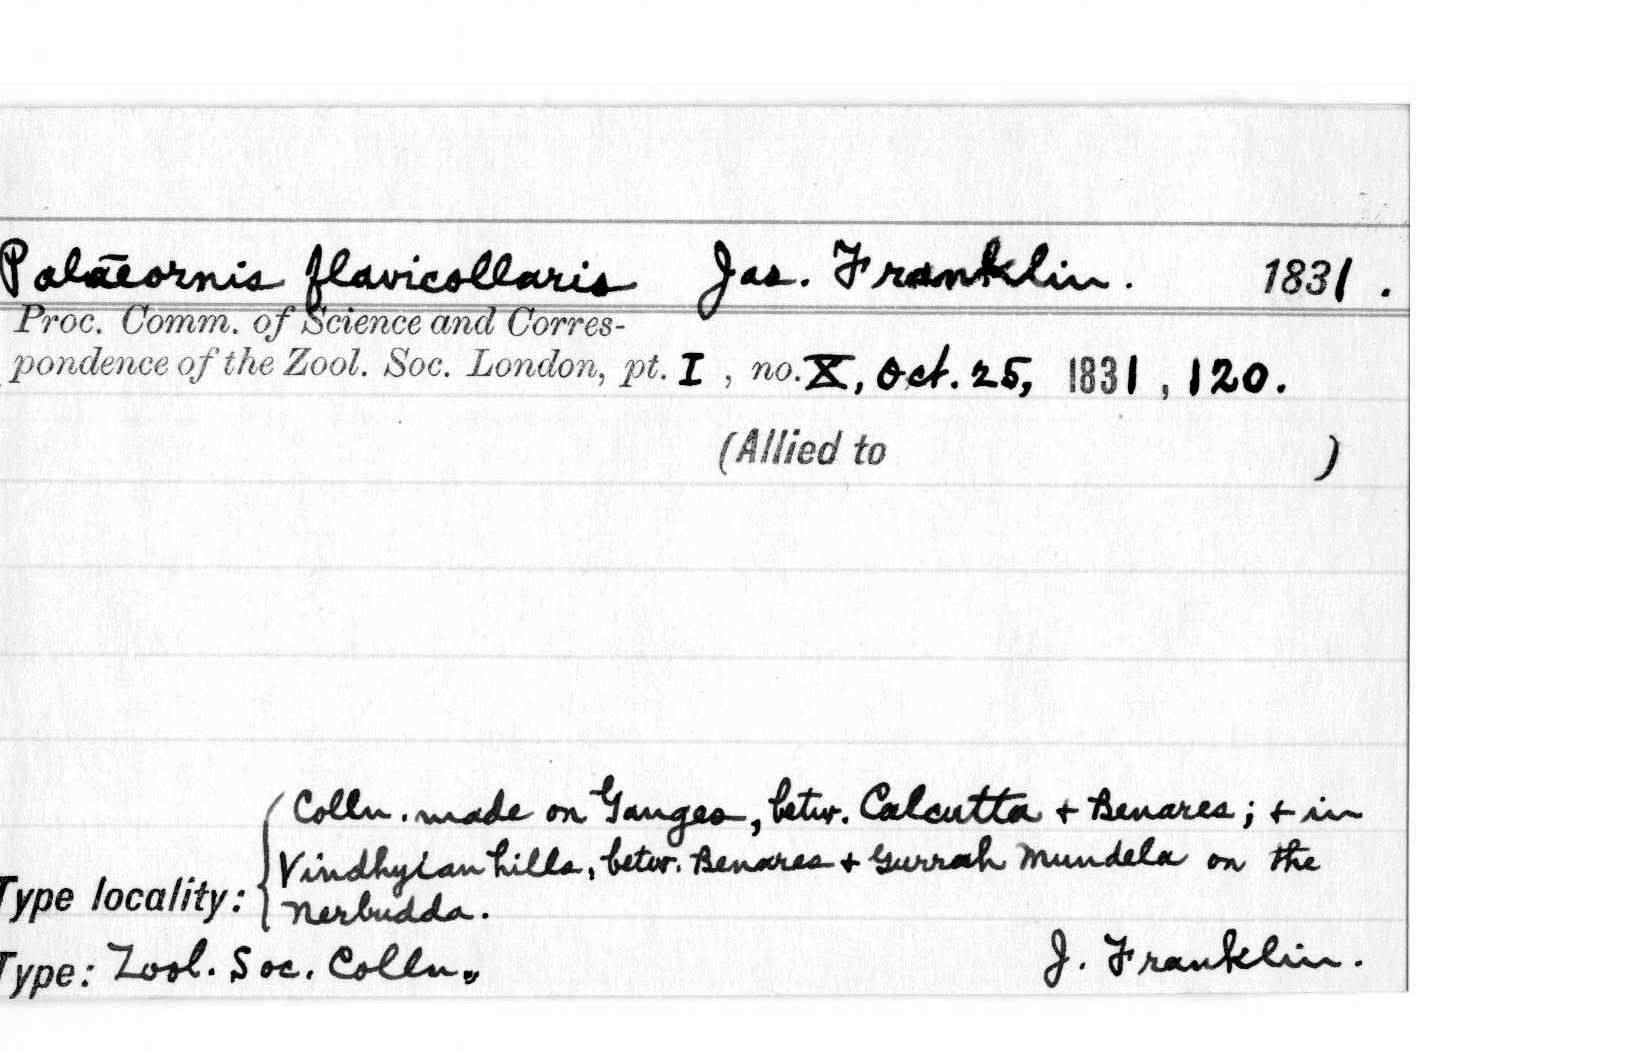 Palaeornis flavicollaris Jas. Franklin. 1831.
Proc. Comm. of Science and Corres-
pondence of the Zool. Soc. London, pt. I, no. X, Oct. 25, 1831, 120.
(Allied to )
Colln. made on Ganges, betw. Calcutta + Benares; + in
Vindhyian hills, betw. Benares + Gurrah Mundela on the
Type locality: Nerbudda.
Type: Zool. Soc. Colln. J. Franklin.